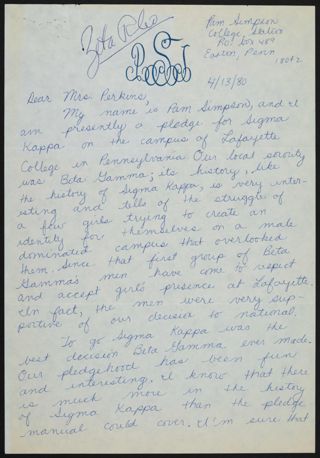 Zeta Rho
Pam Simpson
College Station
P.O. Box 489
Easton, Penn
18042
4/13/80
Dear Mrs. Perkins,
My name is Pam Simpson, and I
am presently a pledge for Sigma
Kappa on the campus of Lafayette
College in Pennsylvania. Our local sorority
was Beta Gamma; its history, like
the history of Sigma Kappa, is very inter-
isting and tells of the struggle of
a few girls trying to create an
identity for themselves on a male
dominated campus that overlooked
them. Since that first group of Beta
Gammas men have come to respect
and accept girls presence at Lafayette.
In fact, the men were very sup-
portive of our decision to national.
To go Sigma Kappa was the
best decision Beta Gamma ever made.
Our pledgehood has been fun
and interesting. I know that there
is much more in the history
of Sigma Kappa than the pledge
manual could cover. I'm sure that